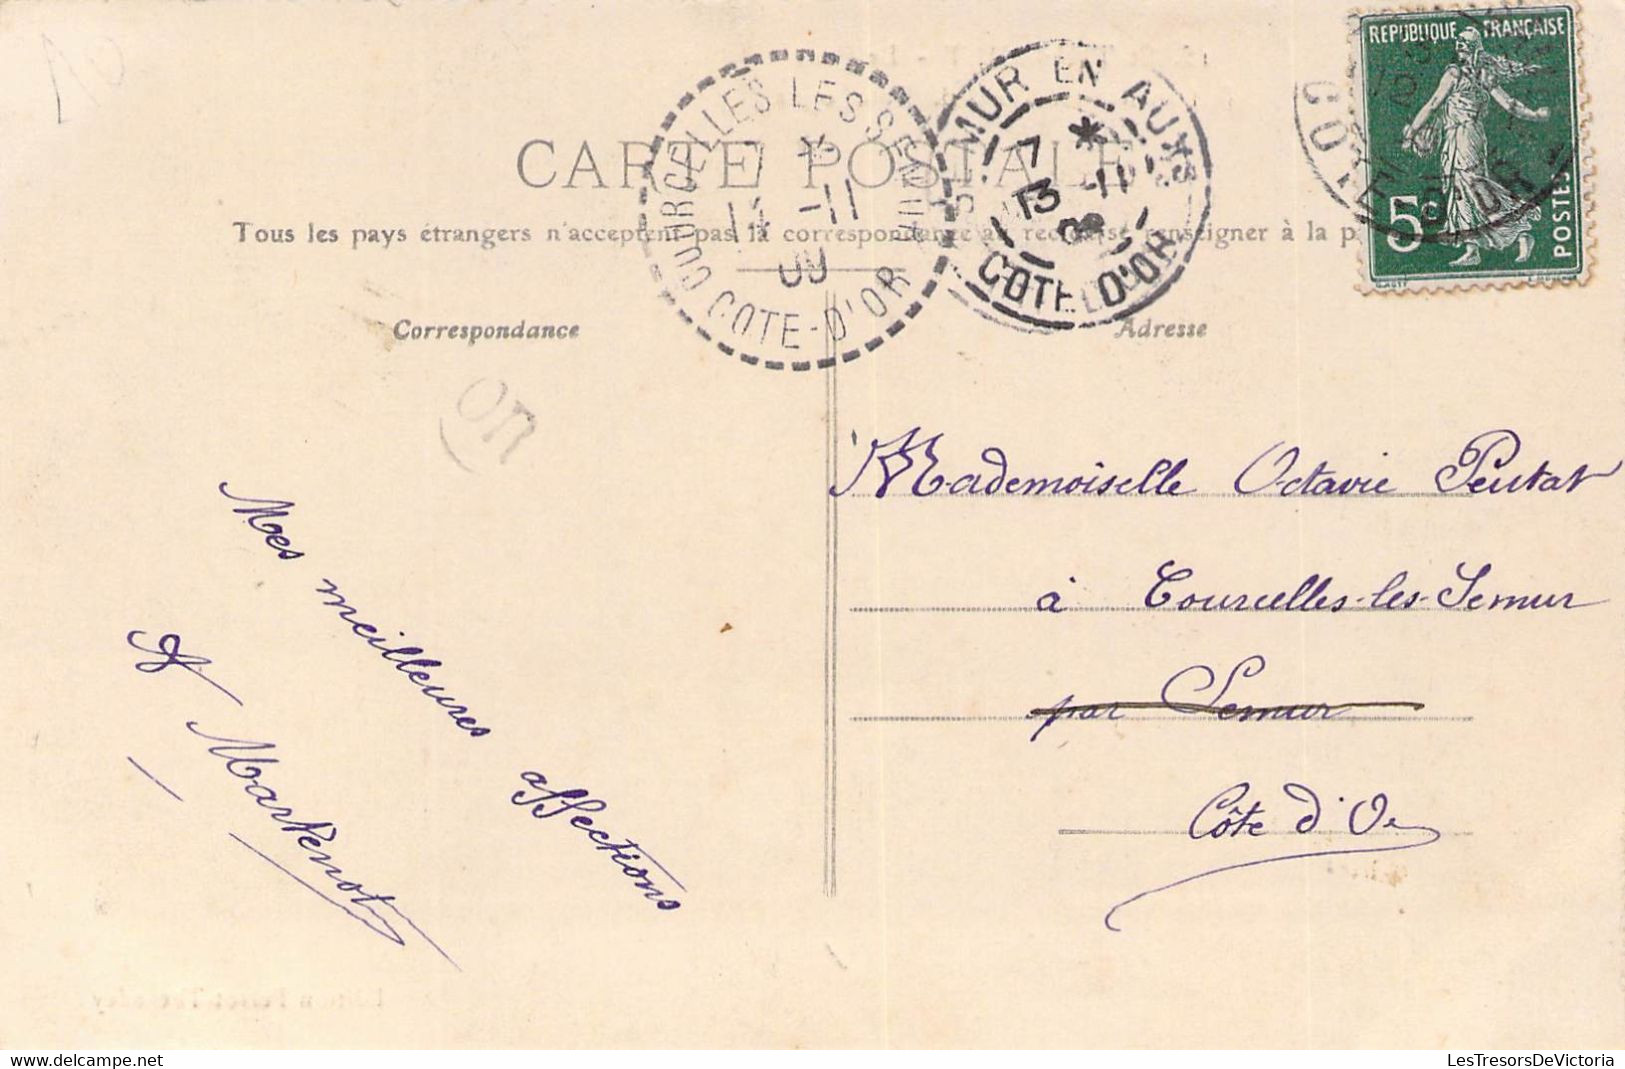 10
REPUBLIQUE FRANÇAISE
5c
POSTES
COTE D'OR
COURCELLES LES SEMUR
COTE-D'OR
* 
14 -11
09
SEMUR EN AUXOIS
7 *
13 -11
09
COTE D'OR
CARTE POSTALE
Tous les pays étrangers n'acceptent pas la correspondance au recto, se renseigner à la p
Correspondance
Adresse
Mademoiselle Octavie Peutat
à Courcelles-les-Semur
par Semur
Côte d'Or
Mes meilleures affections
A Martenot
LesTresorsDeVictoria
www.delcampe.net